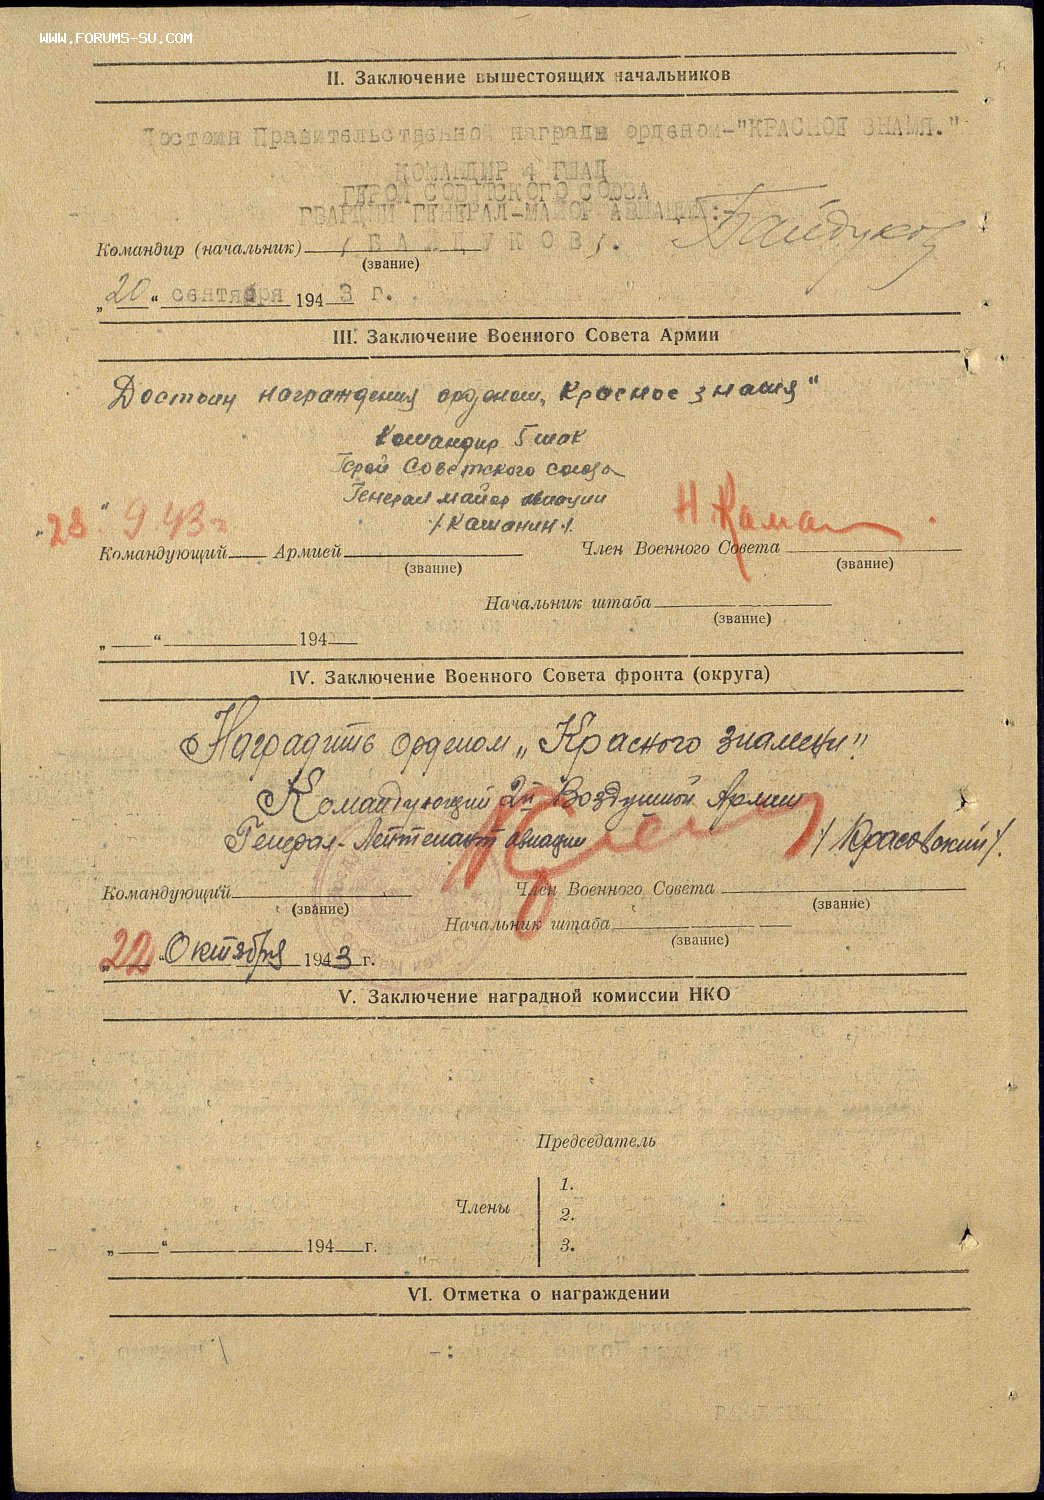 WWW.FORUMS-SU.COM
II. Заключение вышестоящих начальников
Достоин Правительственной награды орденом-"КРАСНОЕ ЗНАМЯ."
КОМАНДИР 4 ГШАД
ГЕРОЙ СОВЕТСКОГО СОЮЗА
ГВАРДИИ ГЕНЕРАЛ-МАЙОР АВИАЦИИ:-
Командир (начальник) / БАЙДУКОВ /. Байдуков
(звание)
„20“ сентября 1943 г.
III. Заключение Военного Совета Армии
Достоин награждения орденом „Красное знамя“
Командир 5 шак
Герой Советского союза
Генерал майор авиации
/Каманин/.
28 9 43 г Н. Каман
Командующий Армией Член Военного Совета
(звание) (звание)
Начальник штаба
(звание)
„ “ 194
IV. Заключение Военного Совета фронта (округа)
Наградить орденом „Красного знамени“.
Командующий 2й Воздушной Армии
Генерал-Лейтенант авиации /Красовский/.
Командующий Член Военного Совета
(звание) (звание)
Начальник штаба
(звание)
„22“ Октября 1943 г.
V. Заключение наградной комиссии НКО
Председатель
1.
Члены 2.
„ “ 194 г. 3.
VI. Отметка о награждении